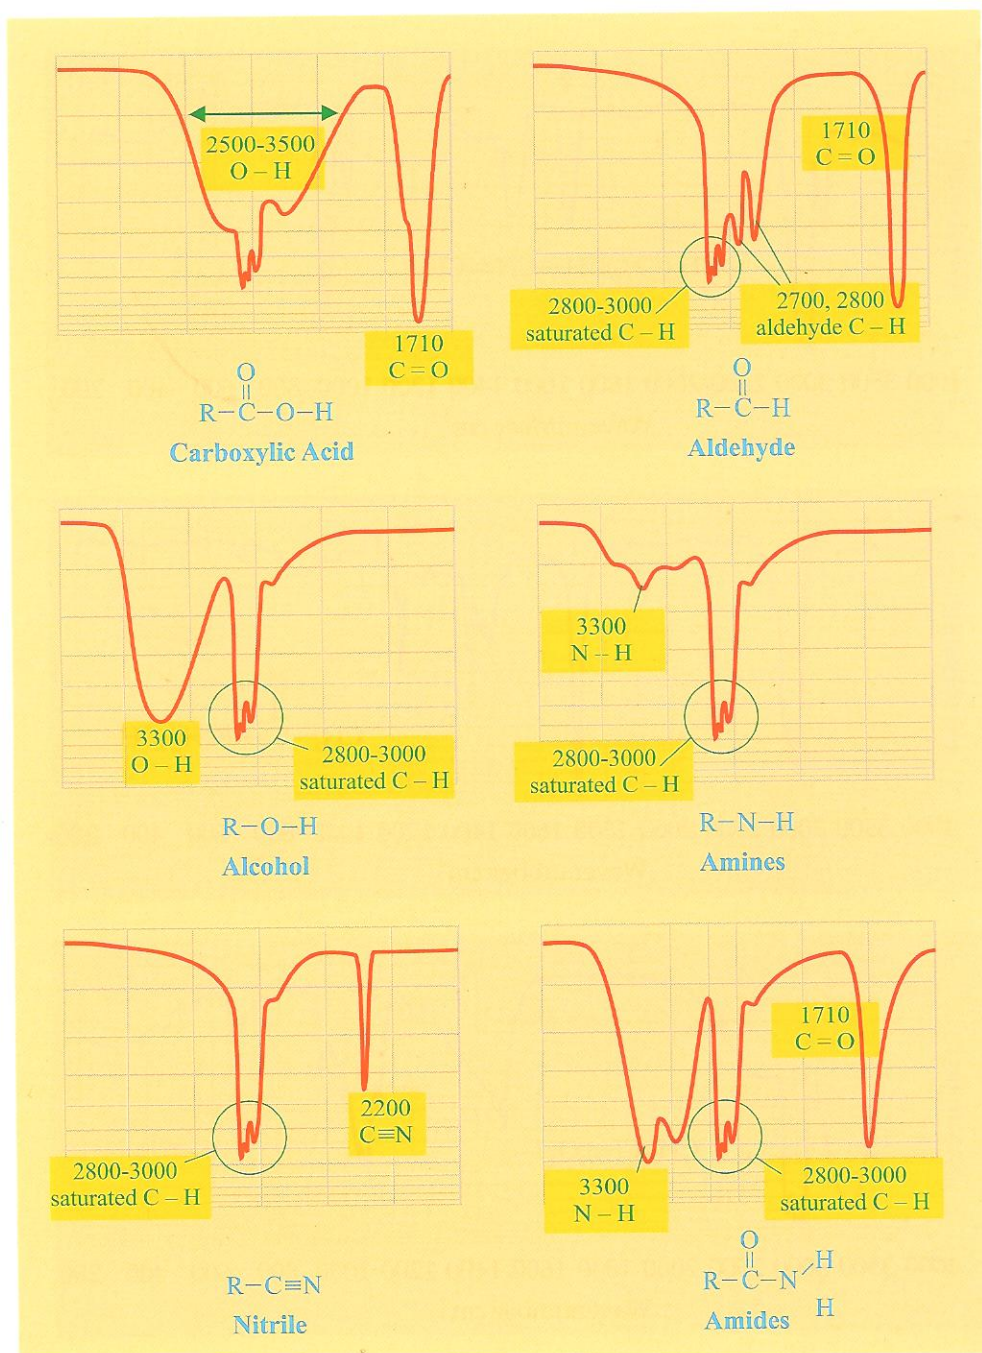 2500-3500
O – H
1710
C = O
O
R–C–O–H
Carboxylic Acid
1710
C = O
2800-3000
saturated C – H
2700, 2800
aldehyde C – H
O
R–C–H
Aldehyde
3300
O – H
2800-3000
saturated C – H
R–O–H
Alcohol
3300
N – H
2800-3000
saturated C – H
R–N–H
Amines
2200
C≡N
2800-3000
saturated C – H
R–C≡N
Nitrile
1710
C = O
3300
N – H
2800-3000
saturated C – H
O
H
R–C–N
H
Amides